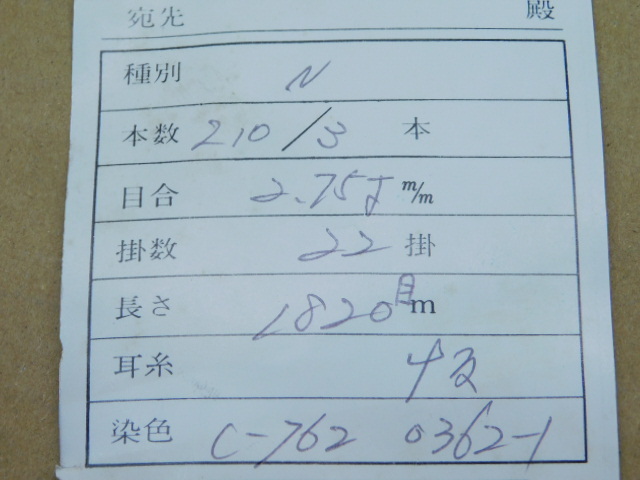 宛先 殿
種別 N
本数 210/3 本
目合 2.75 m/m
掛数 22 掛
長さ 1820目 m
耳糸
染色 C-762 0362-1